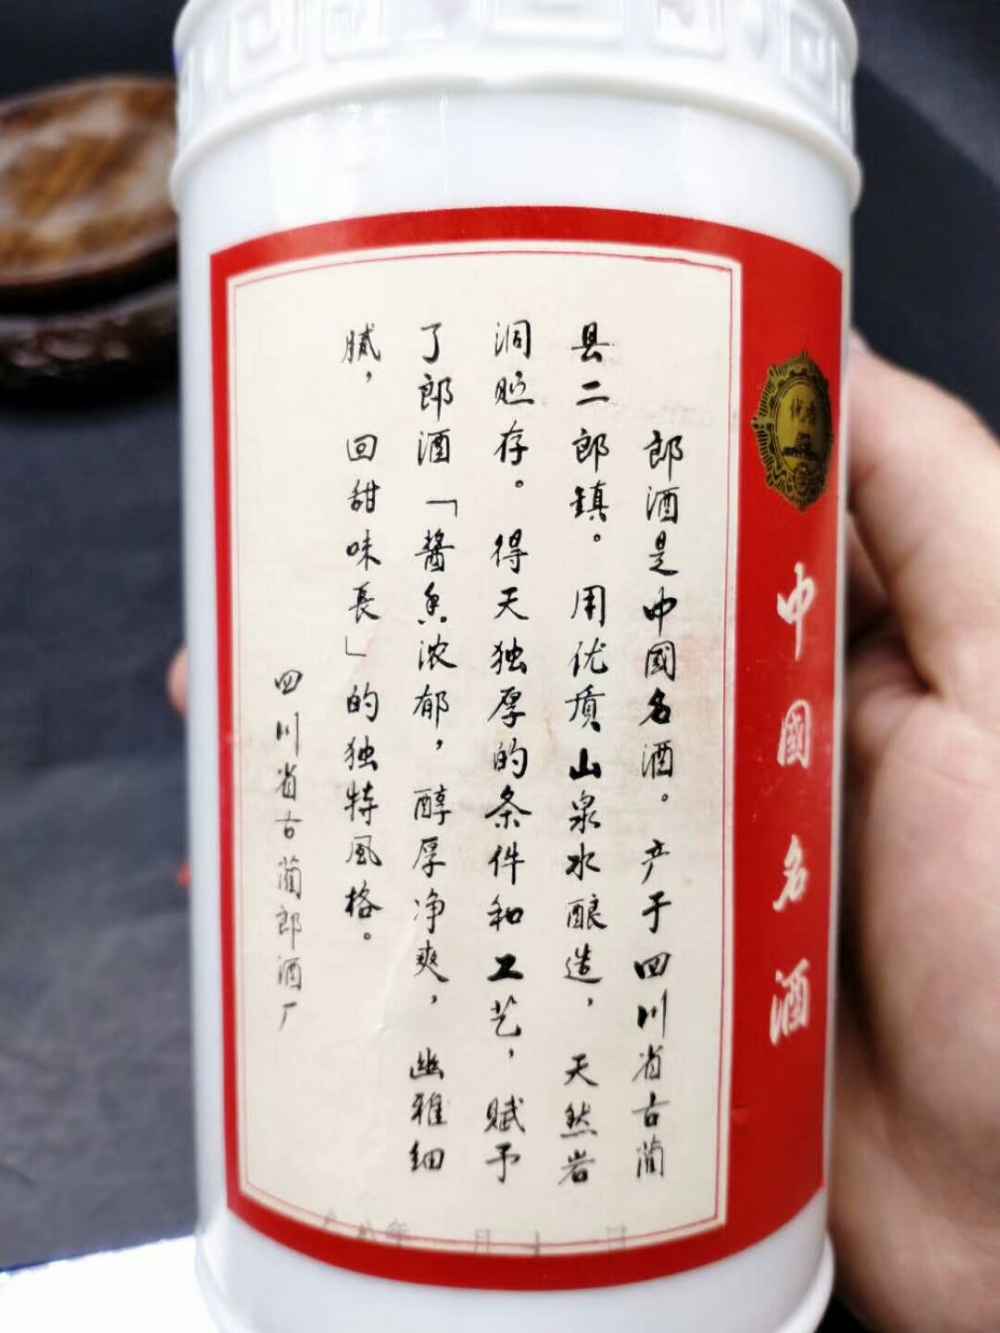 中國名酒
郎酒是中國名酒。产于四川省古蔺
县二郎鎮。用优质山泉水酿造，天然岩
洞贮存。得天独厚的条件和工艺，赋予
了郎酒「醬香浓郁，醇厚净爽，幽雅细
腻，回甜味長」的独特風格。
四川省古蔺郎酒厂
年 月 日